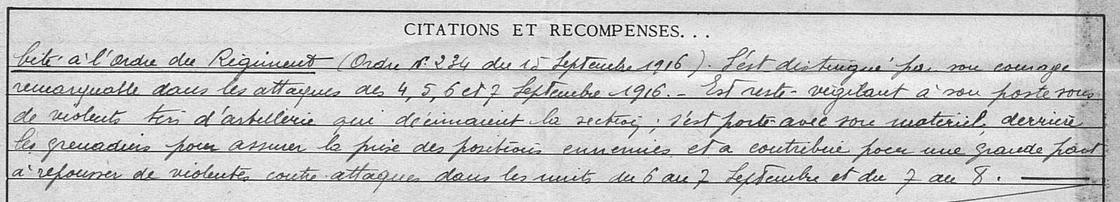 CITATIONS ET RECOMPENSES...
Cité à l'Ordre du Régiment (Ordre N° 234 du 15 Septembre 1916). S'est distingué par son courage
remarquable dans les attaques des 4, 5, 6 et 7 Septembre 1916. - Est resté vigilant à son poste sous
de violents tirs d'artillerie qui décimaient la section; s'est porté avec son matériel, derrière
les grenadiers pour assurer la prise des positions ennemies, et a contribué pour une grande part
à repousser de violentes contre-attaques dans les nuits du 6 au 7 Septembre et du 7 au 8.